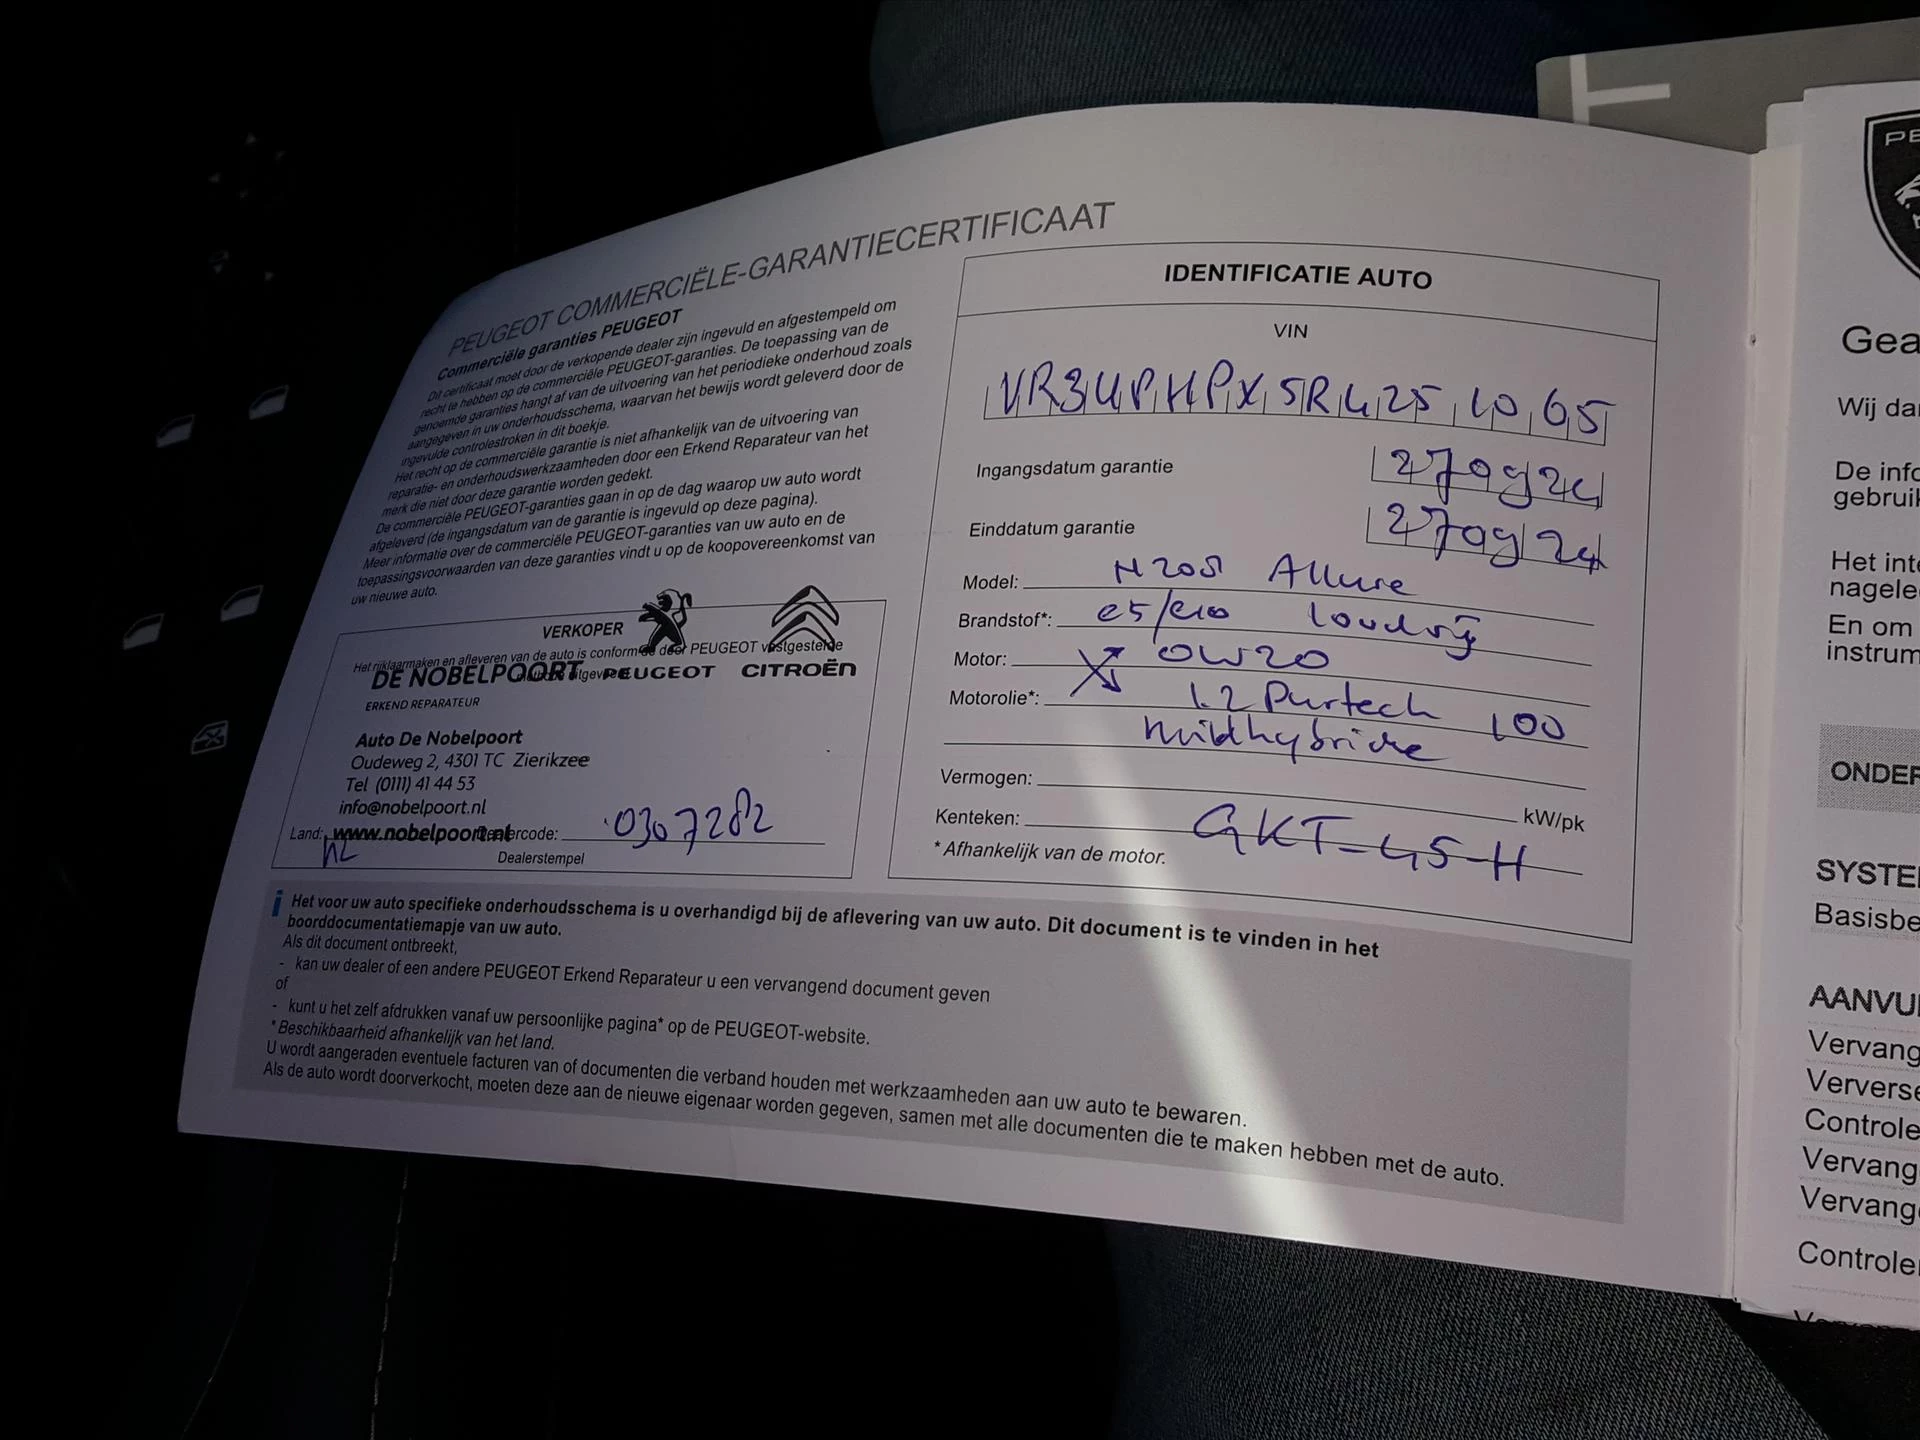 PEUGEOT COMMERCIËLE-GARANTIECERTIFICAAT
Commerciële garanties PEUGEOT
Dit certificaat moet door de verkopende dealer zijn ingevuld en afgestempeld om
recht te hebben op de commerciële PEUGEOT-garanties. De toepassing van de
genoemde garanties hangt af van de uitvoering van het periodieke onderhoud zoals
aangegeven in uw onderhoudsschema, waarvan het bewijs wordt geleverd door de
ingevulde controlestroken in dit boekje.
Het recht op de commerciële garantie is niet afhankelijk van de uitvoering van
reparatie- en onderhoudswerkzaamheden door een Erkend Reparateur van het
merk die niet door deze garantie worden gedekt.
De commerciële PEUGEOT-garanties gaan in op de dag waarop uw auto wordt
afgeleverd (de ingangsdatum van de garantie is ingevuld op deze pagina).
Meer informatie over de commerciële PEUGEOT-garanties van uw auto en de
toepassingsvoorwaarden van deze garanties vindt u op de koopovereenkomst van
uw nieuwe auto.
VERKOPER
Het rijklaarmaken en afleveren van de auto is conform de door PEUGEOT vastgestelde
methode uitgevoerd
DE NOBELPOORT PEUGEOT CITROËN
ERKEND REPARATEUR
Auto De Nobelpoort
Oudeweg 2, 4301 TC Zierikzee
Tel (0111) 41 44 53
info@nobelpoort.nl
www.nobelpoort.nl
Land: NL Dealercode: 0307282
Dealerstempel
IDENTIFICATIE AUTO
VIN
VR3UPHPX5R4251065
Ingangsdatum garantie 270924
Einddatum garantie 270924
Model: N208 Allure
Brandstof*: e5/e10 loodvrij
Motor: 0W20
Motorolie*: 1.2 Puretech 100
mildhybride
Vermogen: kW/pk
Kenteken: GKT-45-H
* Afhankelijk van de motor.
i Het voor uw auto specifieke onderhoudsschema is u overhandigd bij de aflevering van uw auto. Dit document is te vinden in het
boorddocumentatiemapje van uw auto.
Als dit document ontbreekt,
- kan uw dealer of een andere PEUGEOT Erkend Reparateur u een vervangend document geven
of
- kunt u het zelf afdrukken vanaf uw persoonlijke pagina* op de PEUGEOT-website.
* Beschikbaarheid afhankelijk van het land.
U wordt aangeraden eventuele facturen van of documenten die verband houden met werkzaamheden aan uw auto te bewaren.
Als de auto wordt doorverkocht, moeten deze aan de nieuwe eigenaar worden gegeven, samen met alle documenten die te maken hebben met de auto.
PE
Gea
Wij da
De info
gebruik
Het inte
nagele
En om
instrum
ONDER
SYSTE
Basisbe
AANVU
Vervang
Ververse
Controle
Vervang
Vervange
Controle